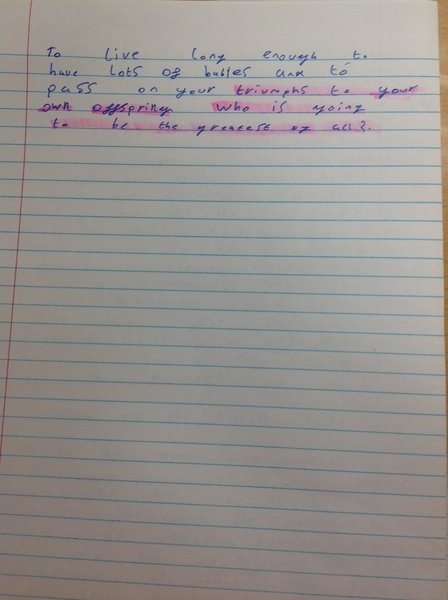 To live long enough to
have lots of babies and to
pass on your triumphs to your
own offspring who is going
to be the greatest of all?.